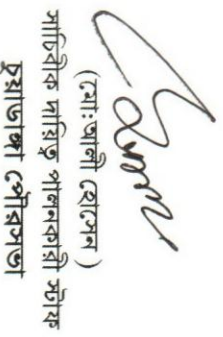 (মোঃ আলী হোসেন)
সাচিবীক দায়িত্ব পালনকারী স্টাফ
চুয়াডাঙ্গা পৌরসভা